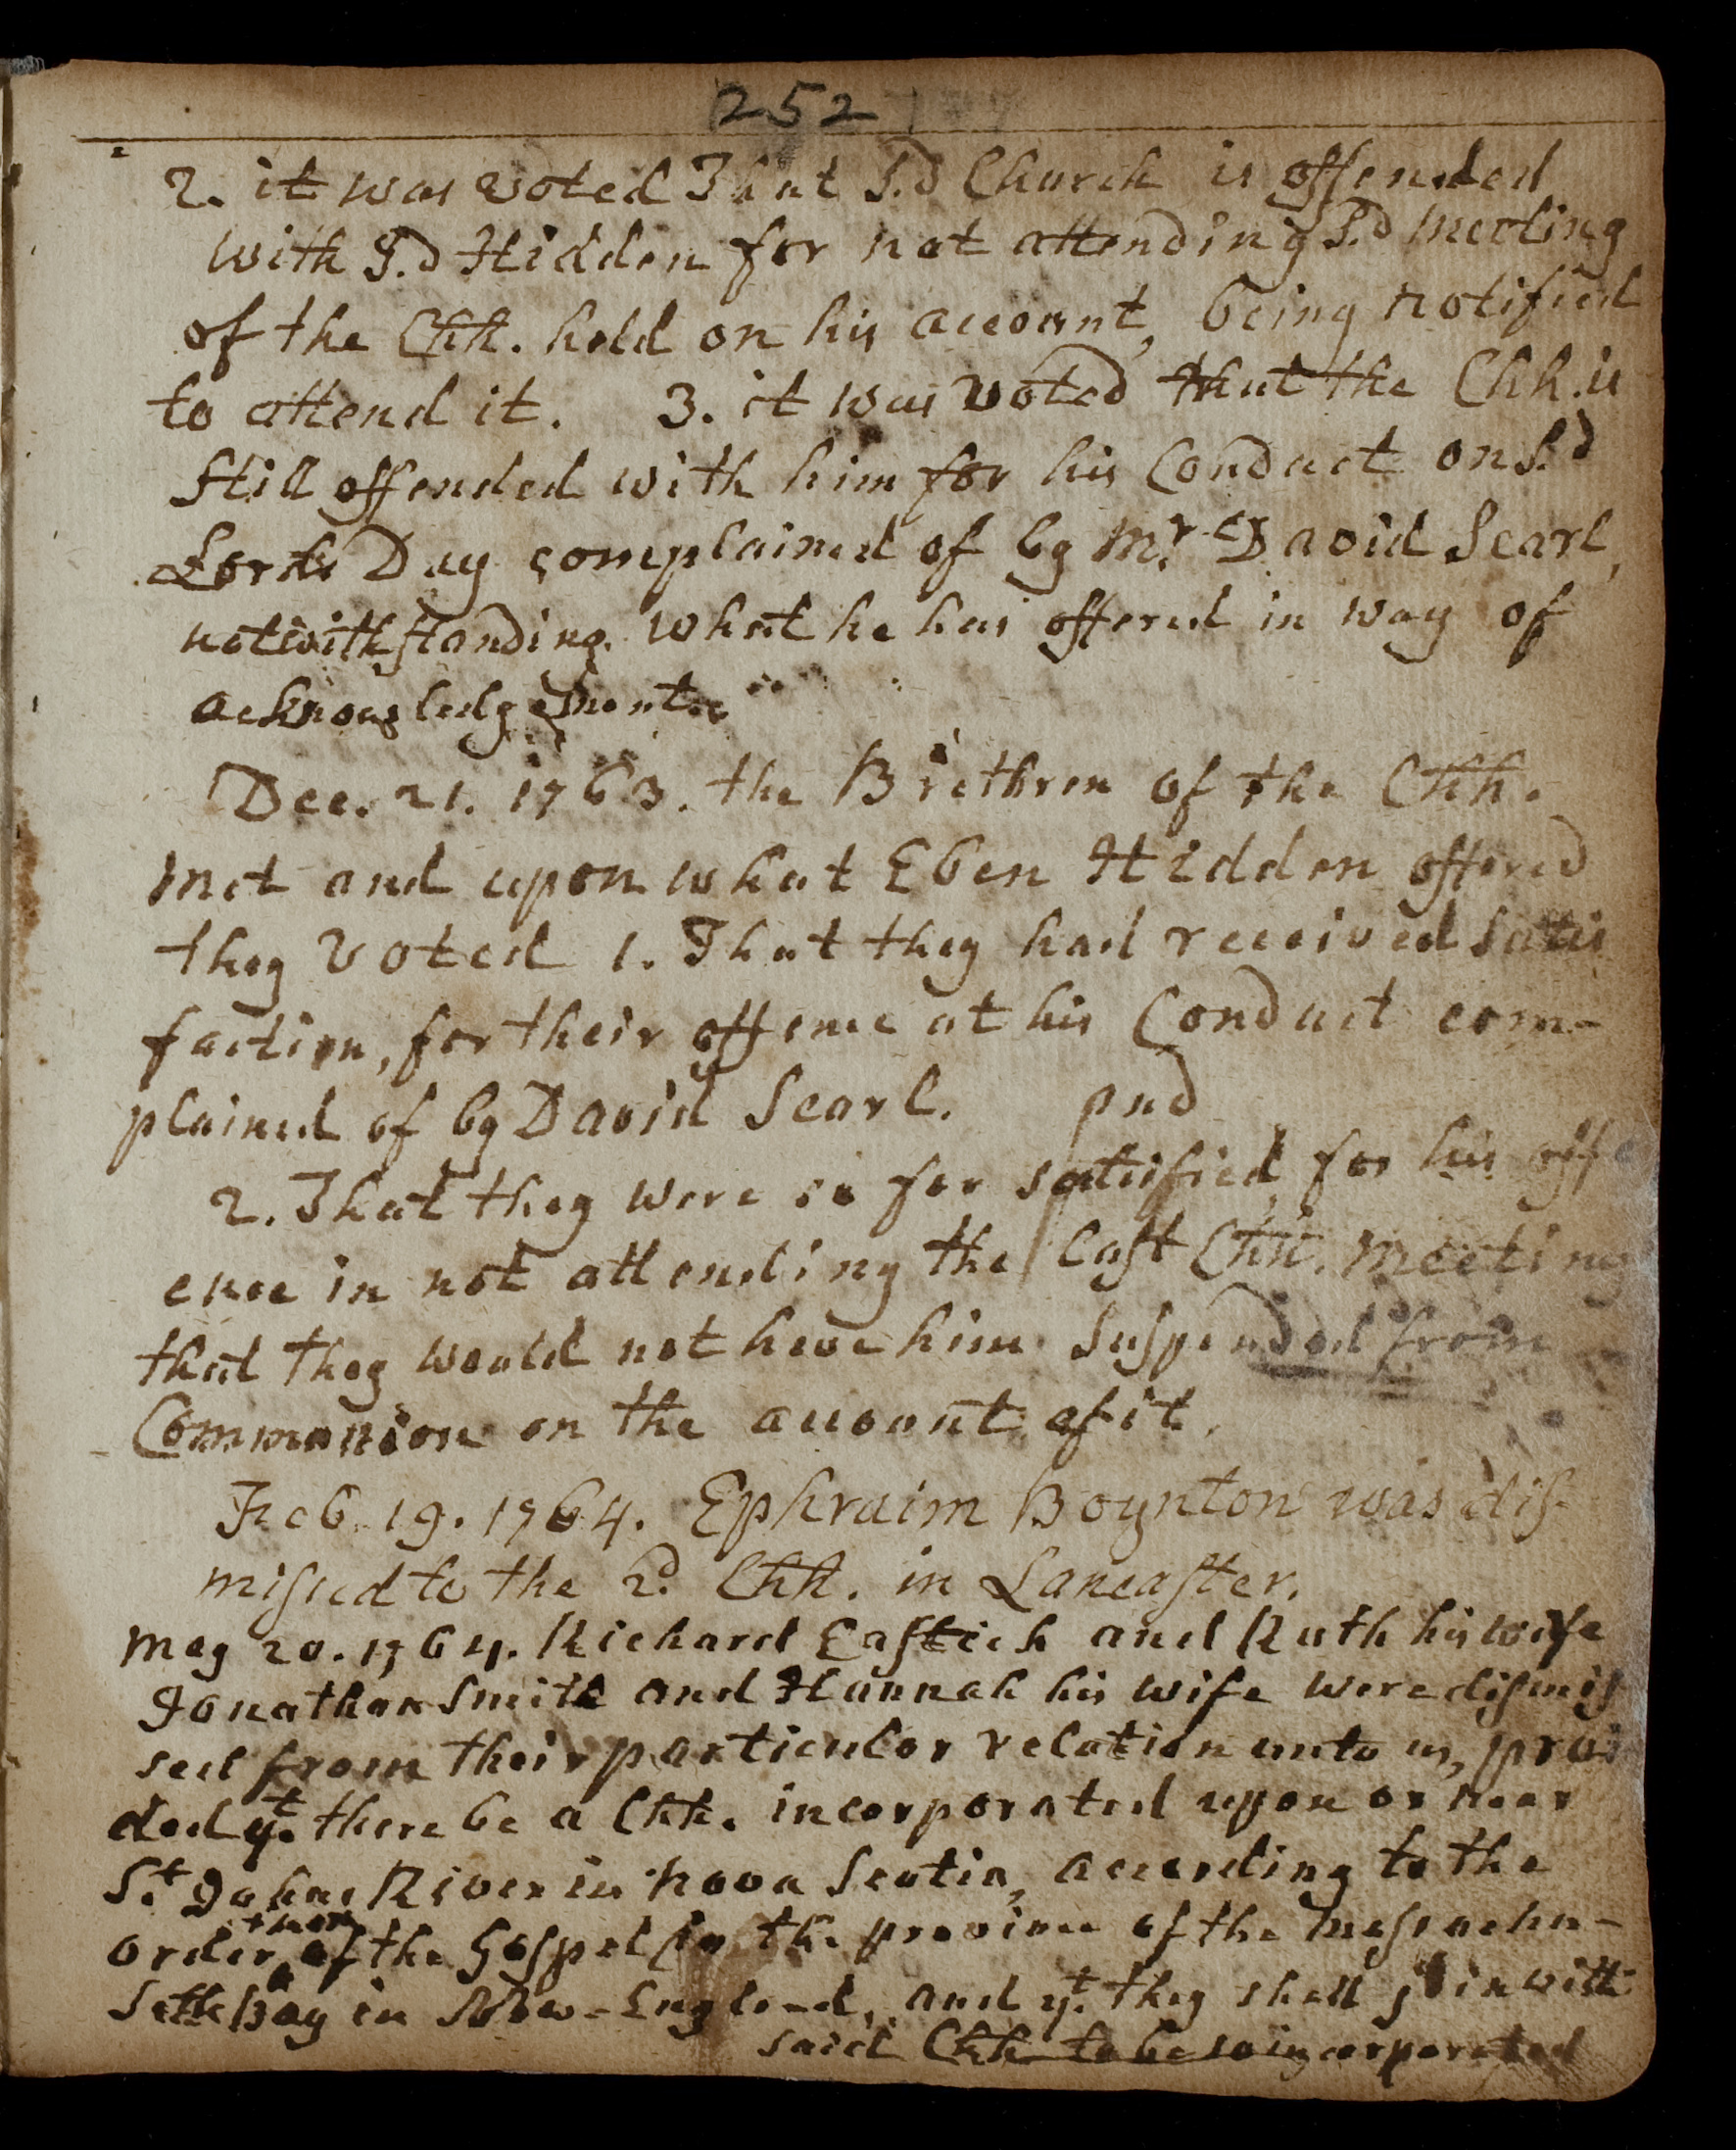 252
2. it was voted That S.d Church is offended
with S.d Hidden for not attending S.d meeting
of the Chh. held on his account, being notified
to attend it. 3. it was voted that the Chh. is
still offended with him for his Conduct on S.d
Lords Day complained of by Mr. David Searl,
notwithstanding what he has offered in way of
acknowledgement.
Dec. 21. 1763. the Brethren of the Chh.
met and upon what Eben Hidden offered
they voted 1. That they had received satis
faction, for their offence at his Conduct com-
plained of by David Searl. and
2. That they were so far satisfied for his offe
ence in not attending the last Chh. meeting
that they would not have him suspended from
Communion on the account of it.
Feb. 19. 1764. Ephraim Boynton was dis
missed to the 2.d Chh. in Lancaster.
May 20. 1764. Richard Eastick and Ruth his wife
Jonathan Smith and Hannah his wife were dismis
sed from their particular relation unto us, provi
ded yt. there be a Chh. incorporated upon or near
St. Johns River in Nova Scotia, according to the
order of the Gospel in the province of the Massachu-
setts Bay in New-England, and yt. they shall join with
said Chh to be so incorporated